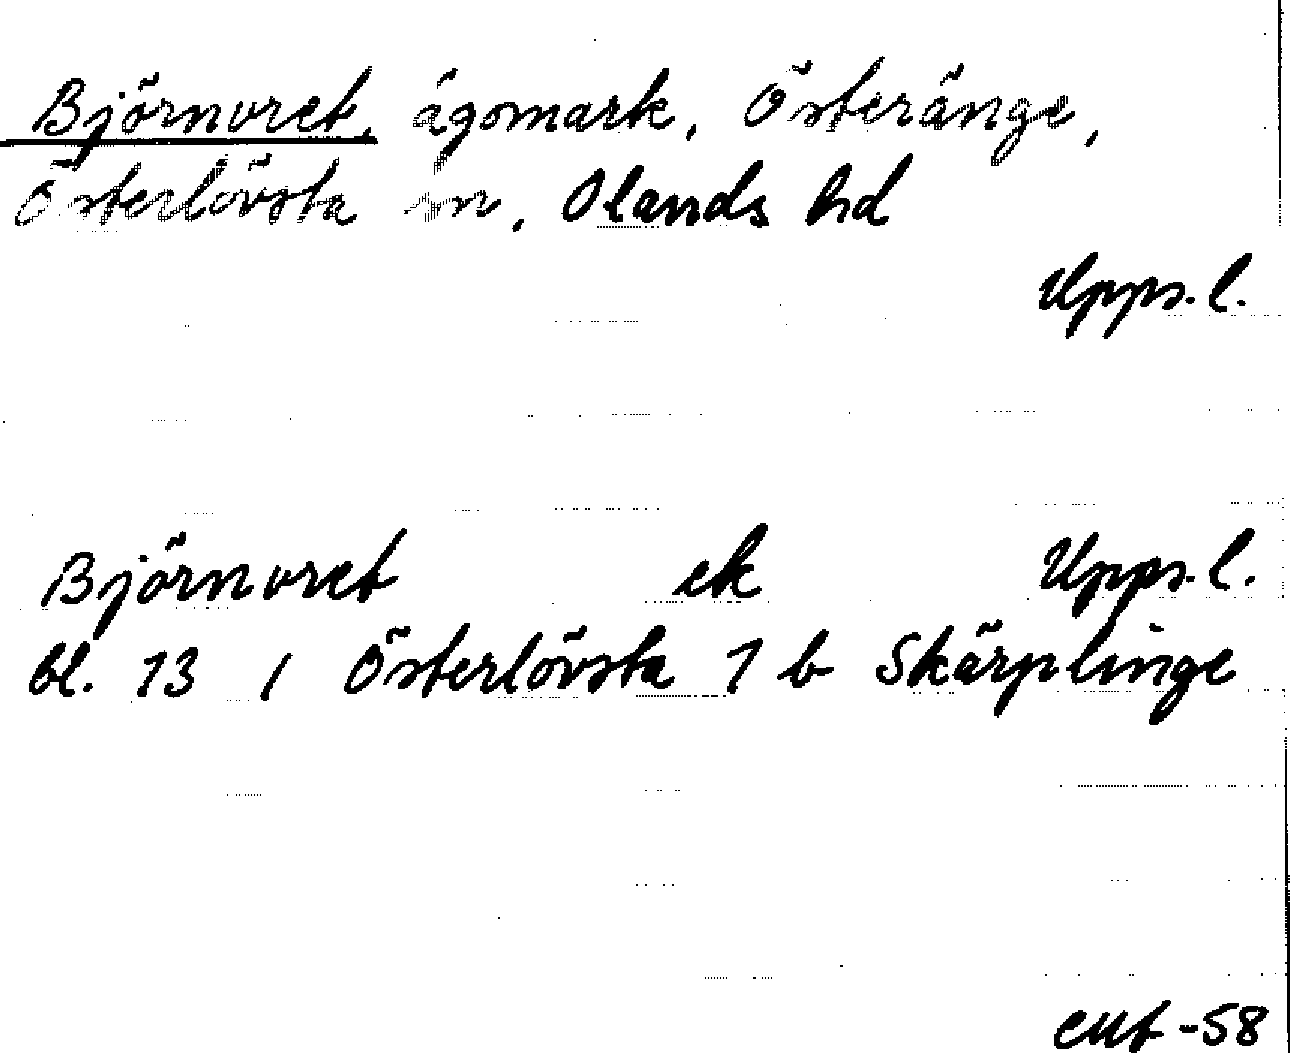 Björnvret, ägomark, Österänge,
Österlövsta sn, Olands hd
Upps. l.
Björnvret ek Upps. l.
bl. 13 / Österlövsta 1 b Skärplinge
-58